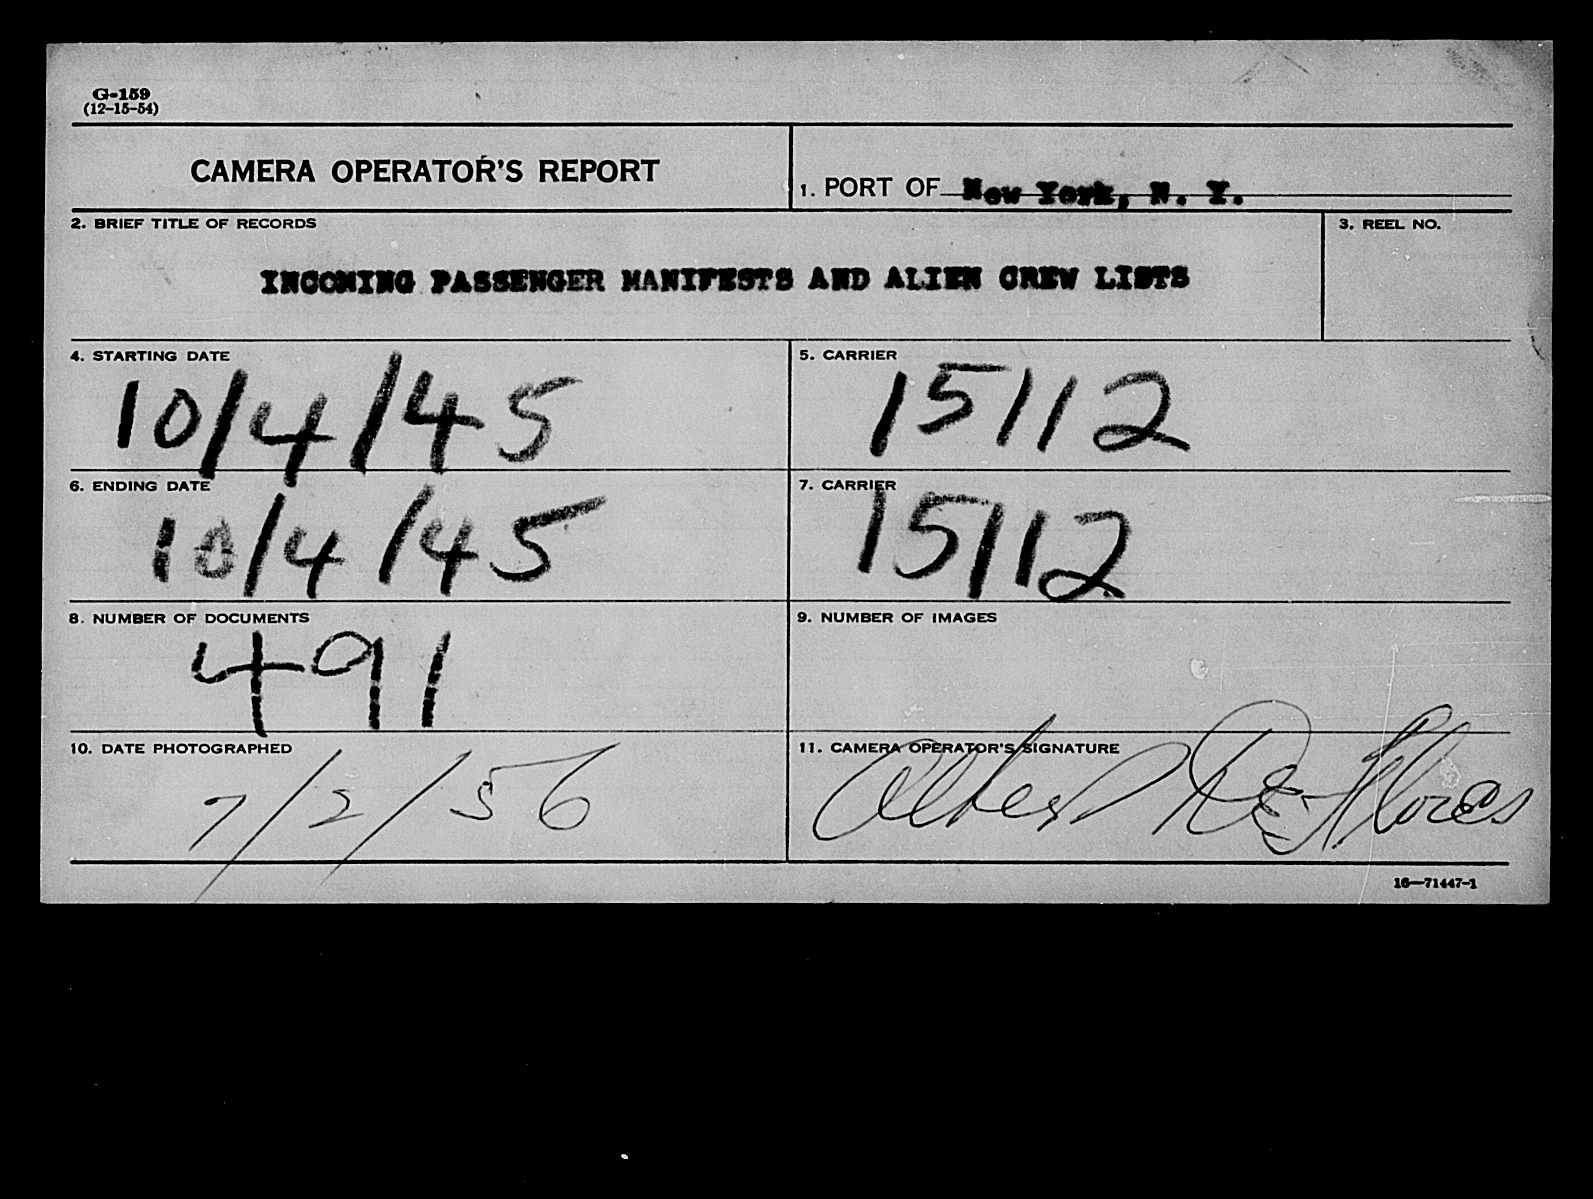 G-159
(12-15-54)
CAMERA OPERATOR'S REPORT
1. PORT OF New York, N. Y.
2. BRIEF TITLE OF RECORDS
3. REEL NO.
INCOMING PASSENGER MANIFESTS AND ALIEN CREW LISTS
4. STARTING DATE
10/4/45
5. CARRIER
15112
6. ENDING DATE
10/4/45
7. CARRIER
15112
8. NUMBER OF DOCUMENTS
491
9. NUMBER OF IMAGES
10. DATE PHOTOGRAPHED
7/2/56
11. CAMERA OPERATOR'S SIGNATURE
Albert De Flores
16—71447-1